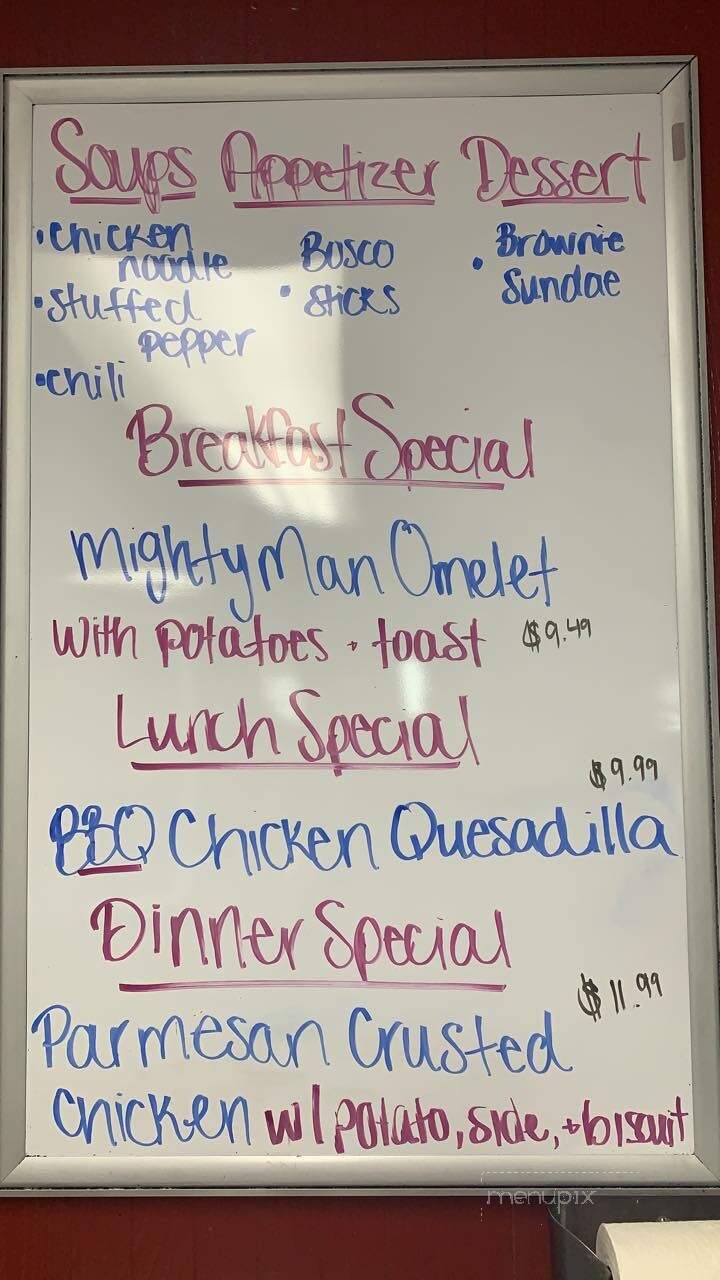 Soups Appetizer Dessert
• Chicken noodle
• Stuffed pepper
• chili
• Bosco Sticks
• Brownie Sundae
Breakfast Special
Mighty Man Omelet
with potatoes + toast $9.49
Lunch Special
$9.99
BBQ Chicken Quesadilla
Dinner Special
$11.99
Parmesan Crusted
chicken w/ potato, side, + biscuit
menupix